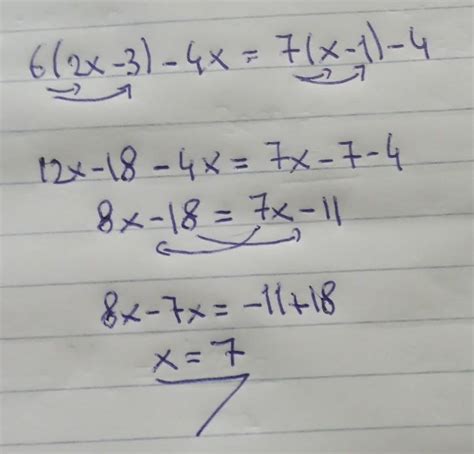 6(2x-3)-4x=7(x-1)-4
12x-18-4x=7x-7-4
8x-18=7x-11
8x-7x=-11+18
x=7